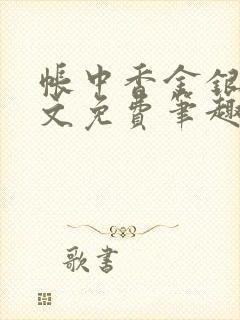 帐中香金银
文免费笔趣
歌书